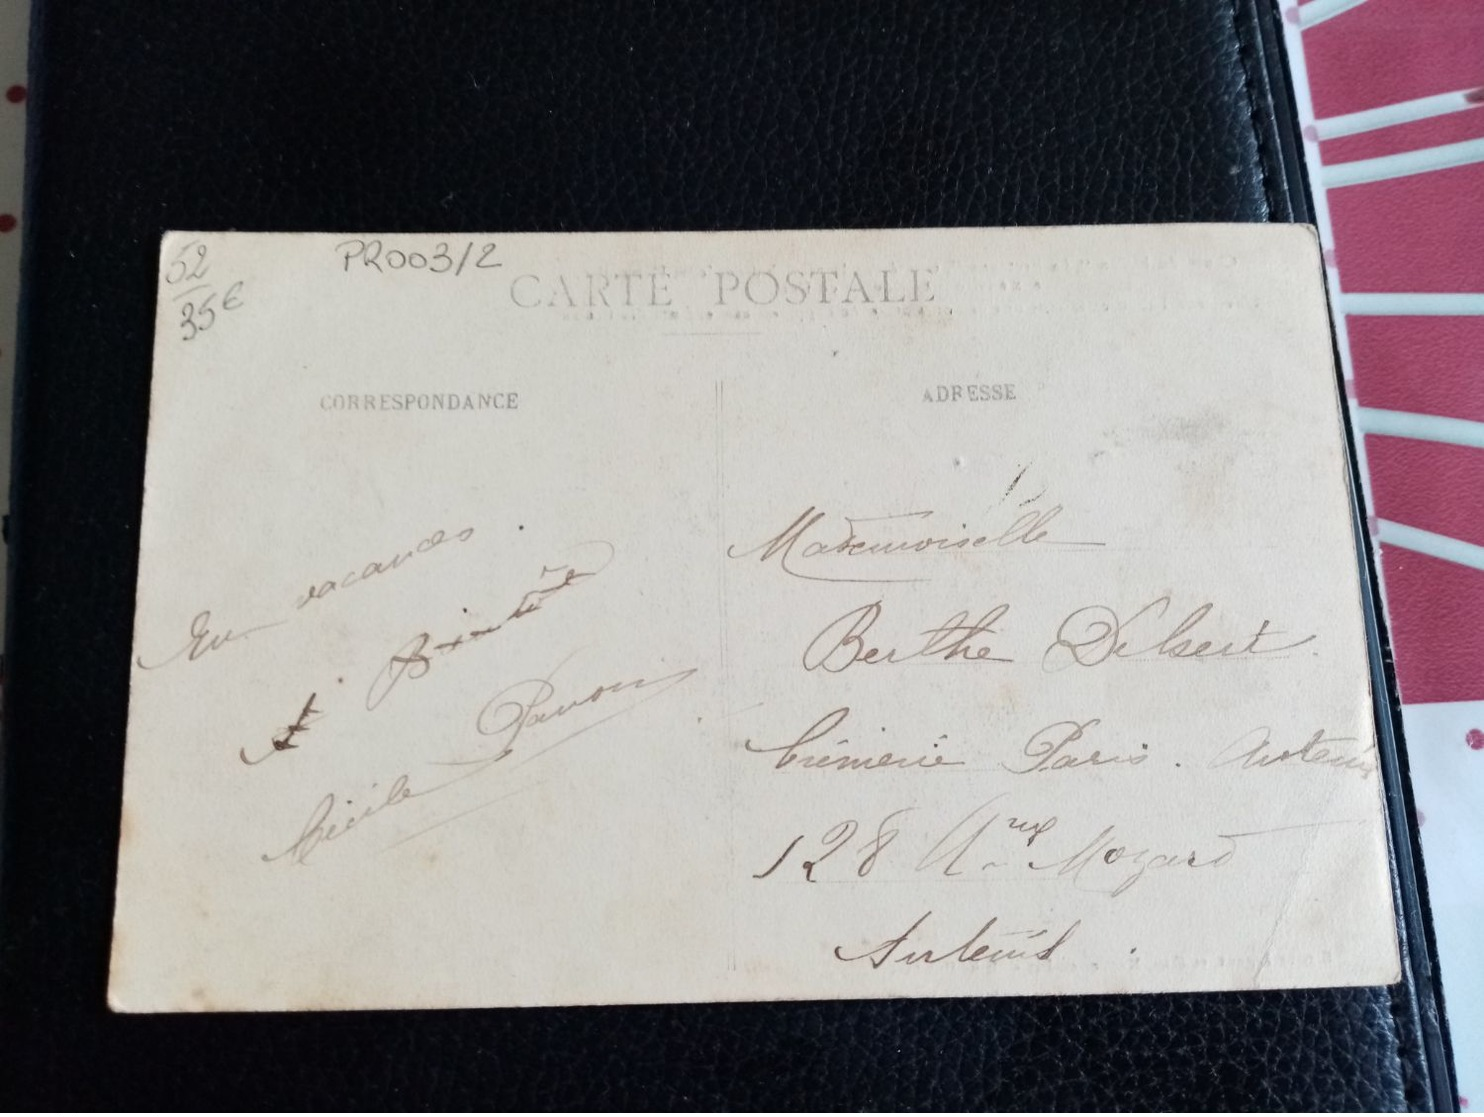 52
35€
PR003/2
CARTE POSTALE
CORRESPONDANCE
En vacances
A
Cécile
ADRESSE
Mademoiselle
Berthe Delsert
Crémerie Paris. Auteuil
128 Mozard
Auteuil